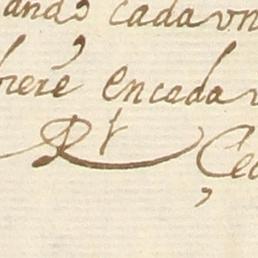 ando cada vn
biere en cada v
Rl Ce